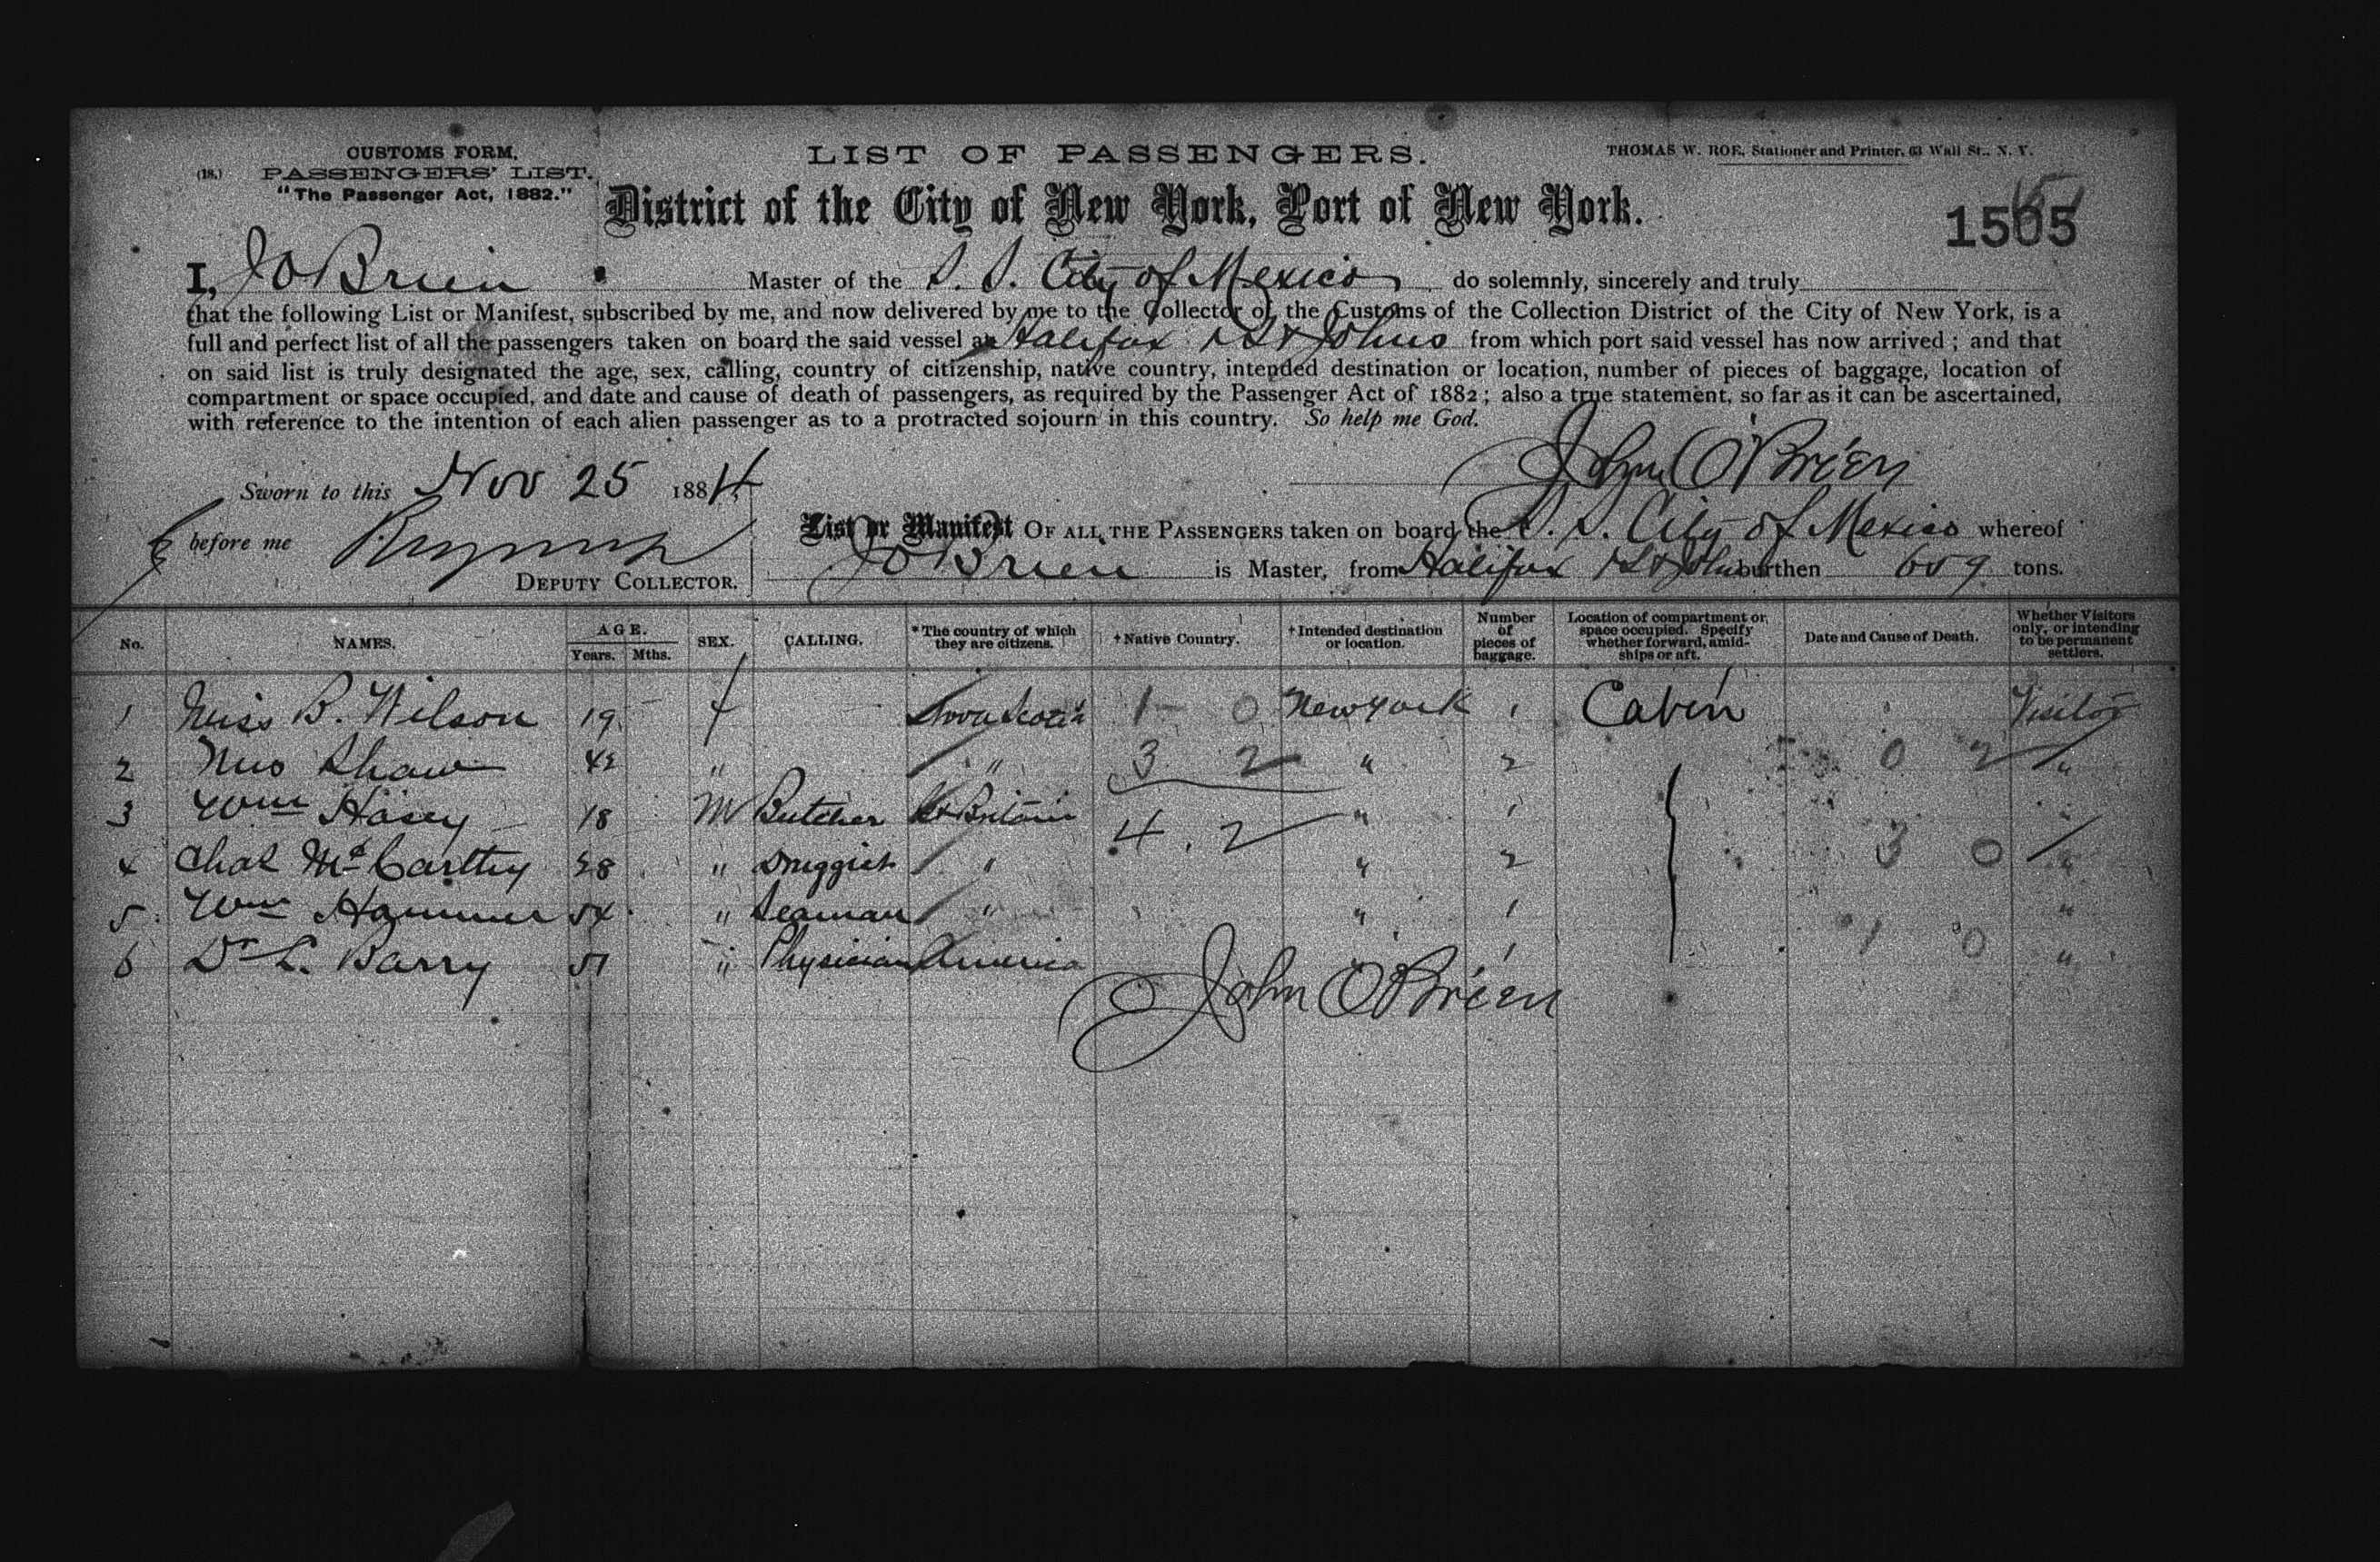 CUSTOMS FORM.
(18.) PASSENGERS' LIST.
"The Passenger Act, 1882."
LIST OF PASSENGERS.
THOMAS W. ROE, Stationer and Printer, 63 Wall St., N. Y.
District of the City of New York, Port of New York.
1505
I, J O Brien Master of the S. S. City of Mexico do solemnly, sincerely and truly
that the following List or Manifest, subscribed by me, and now delivered by me to the Collector of the Customs of the Collection District of the City of New York, is a
full and perfect list of all the passengers taken on board the said vessel at Halifax & St Johns from which port said vessel has now arrived; and that
on said list is truly designated the age, sex, calling, country of citizenship, native country, intended destination or location, number of pieces of baggage, location of
compartment or space occupied, and date and cause of death of passengers, as required by the Passenger Act of 1882; also a true statement, so far as it can be ascertained,
with reference to the intention of each alien passenger as to a protracted sojourn in this country. So help me God.
John O'Brien
Sworn to this Nov 25 1884
before me
DEPUTY COLLECTOR.
List or Manifest OF ALL THE PASSENGERS taken on board the S. S. City of Mexico whereof
J O Brien is Master, from Halifax & St Johns burthen 609 tons.
No. NAMES. AGE. Years. Mths. SEX. CALLING. *The country of which they are citizens. †Native Country. †Intended destination or location. Number of pieces of baggage. Location of compartment or space occupied. Specify whether forward, amidships or aft. Date and Cause of Death. Whether Visitors only, or intending to be permanent settlers.
1 Miss B. Wilson 19 f Nova Scotia 1 0 New York 1 Cabin Visitor
2 Mrs Shaw 42 " " 3 2 " 2 0 2 "
3 Wm Hasey 18 M Butcher Gt Britain 4 . 2 " 1 "
4 Chas McCarthy 28 " Druggist " " 2 3 0 "
5 Wm Hammer 54 " Seaman " " 1 "
6 Dr L. Barry 51 " Physician America " 1 1 0 "
John O'Brien